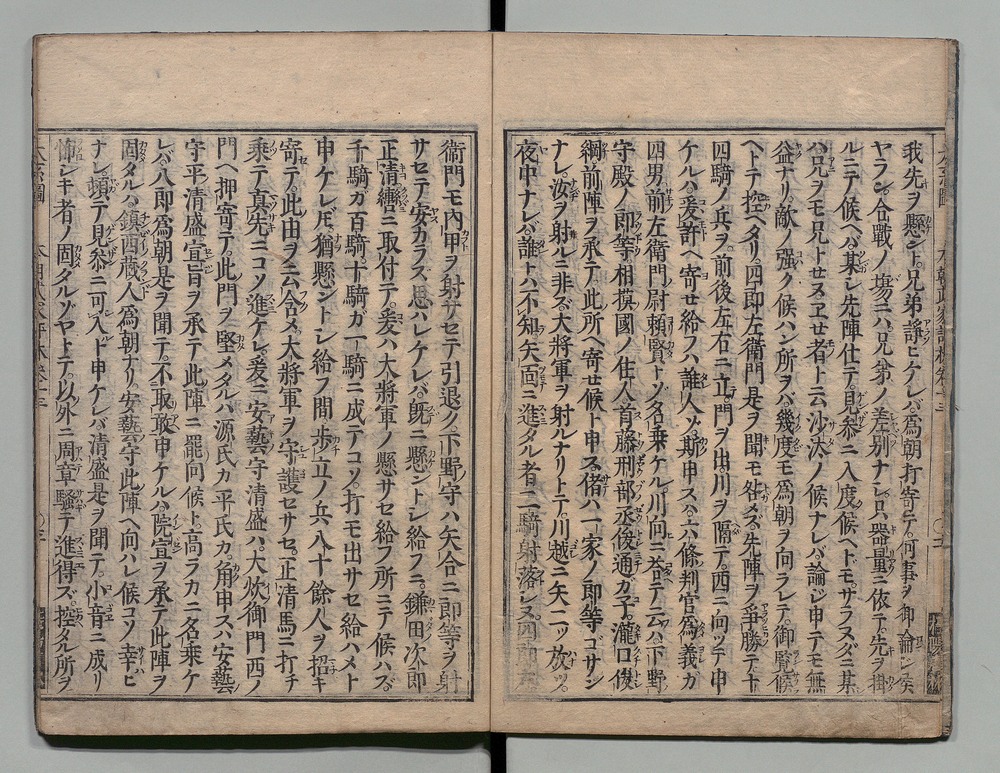 我先ヲ懸ント兄弟諍ヒケレバ爲朝打寄テ何事ヲ御論ジ候
ヤラン合戰ノ塲ニハ兄弟ノ差別ナシ只器量ニ依テ先ヲ掛
ルニテ候ヘバ某シ先陣仕テ見叅ニ入度候ヘトモサラヌダニ某
ハ兄ヲモ兄トセヌヱセ者ト云沙汰ノ候ナレバ論ジ申テモ無
益ナリ敵ノ强ク候ハン所ヲバ幾度モ爲朝ヲ向ラレテ御覧候
ヘトテ控ヘタリ四郎左衛門是ヲ聞モ咎メズ先陣ヲ爭勝テト
四騎ノ兵ヲ前後左右ニ立門ヲ出川ヲ隔テ西ニ向ツテ申
ケルハ爰許ヘ寄セ給フハ誰人ゾ斯申スハ六條判官爲義ガ
四男前左衛門ノ尉頼賢トゾ名乗ケル川向ニ荅テ云ハ下野
守殿ノ郎等相摸國ノ住人首藤刑部丞俊通ガ子瀧口俊
綱前陣ヲ承テ此所ヘ寄セ候ト申ス偖ハ一家ノ郎等コサン
ナレ汝ヲ射ルニ非ズ大將軍ヲ射ルナリトテ川越ニ矢二ツ放ツ
夜中ナレバ誰トハ不知矢面ニ進タル者二騎射落シヌ四郎左
衞門モ內甲ヲ射サセテ引退ク下野守ハ矢合ニ郎等ヲ射
サセテ安カラズ思ハレケレバ既ニ懸ントシ給フニ鎌田次郎
正清轡ニ取付テ爰ハ大將軍ノ懸サセ給フ所ニテ候ハズ
千騎ガ百騎十騎ガ一騎ニ成テコソ打モ出サセ給ハメト
申ケレ𪜈猶懸ントシ給フ間歩立ノ兵八十餘人ヲ招キ
寄テ此由ヲ云含メ大將軍ヲ守護セサセ正清馬ニ打チ
乗テ真先ニコソ進ケレ爰ニ安藝守清盛ハ大炊御門西ノ
門ヘ押寄テ此門ヲ堅メタルハ源氏カ平氏カ角申スハ安藝
守平清盛宣旨ヲ承テ此陣ニ罷向候ト高ラカニ名乗ケ
レバ八郎爲朝是ヲ聞テ不取敢申ケルハ院宣ヲ承テ此陣ヲ
固タルハ鎮西蔵人爲朝ナリ安藝守此陣ヘ向ハレ候コソ幸ヒ
ナレ頓テ見叅ニ可入ト申ケレバ清盛是ヲ聞テ小音ニ成リ
怖シキ者ノ固タルゾヤトテ以外ニ周章騒テ進得ズ控タル所ヲ